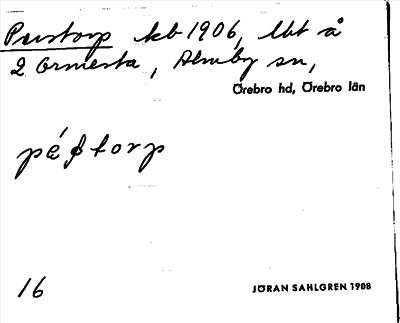 Perstorp kb 1906, lht å
2 Ormesta, Almby sn,
Örebro hd, Örebro län
pé$torp
16
JÖRAN SAHLGREN 1908